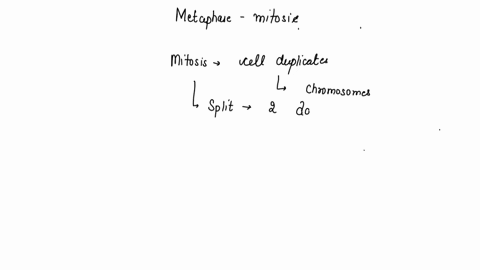 Metaphase - mitosis
Mitosis → cell duplicates
↳ chromosomes
↳ Split → 2 do